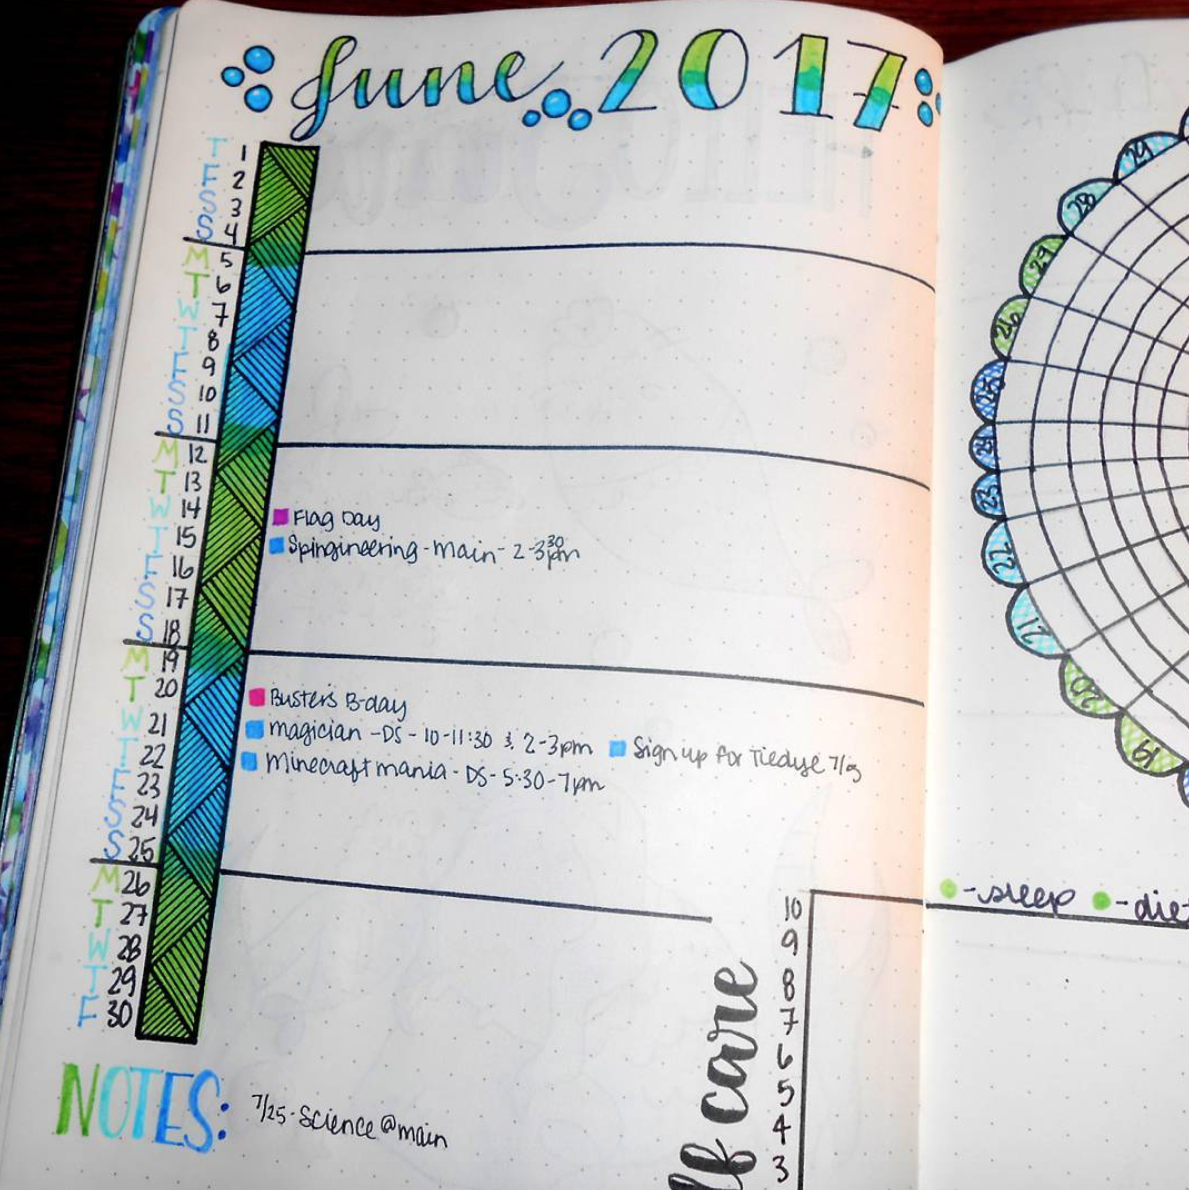 June 2017
T 1
F 2
S 3
S 4
M 5
T 6
W 7
T 8
F 9
S 10
S 11
M 12
T 13
W 14
Flag Day
T 15
Spingineering - main - 2-3:30pm
F 16
S 17
S 18
M 19
T 20
Busters B-day
W 21
magician - DS - 10-11:30 & 2-3pm
Sign up for Tiedye 7/3
T 22
Minecraft mania - DS - 5:30-7pm
F 23
S 24
S 25
M 26
T 27
W 28
T 29
F 30
NOTES:
7/25 - Science @ main
29
28
27
26
25
24
23
22
21
20
19
- sleep
- die
10
9
8
7
6
5
4
3
lf care